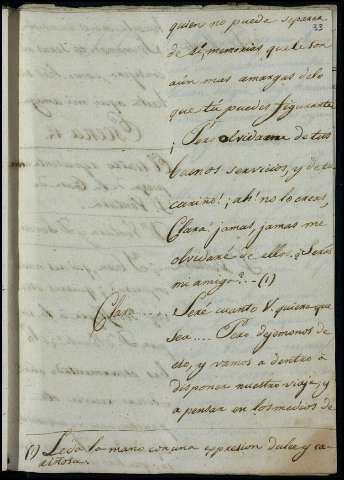 33
quien no puede separar
de sí, memorias que le son
aún mas amargas delo
que tú puedes figurarte
¡Pero olvidarme de tus
buenos servicios, y de tu
cariño! ¡ah! no lo creas,
Clara. jamas, jamas me
olvidaré de ellos. ¿Serás
mi amigo? — (1)
Clar...... Seré cuanto V. quiera que
sea.... Pero dejemonos de
eso, y vamos a dentro á
disponer nuestro viaje, y
a pensar en los medios de
(1) Le da la mano con una expresion dulce y ca-
riñosa.